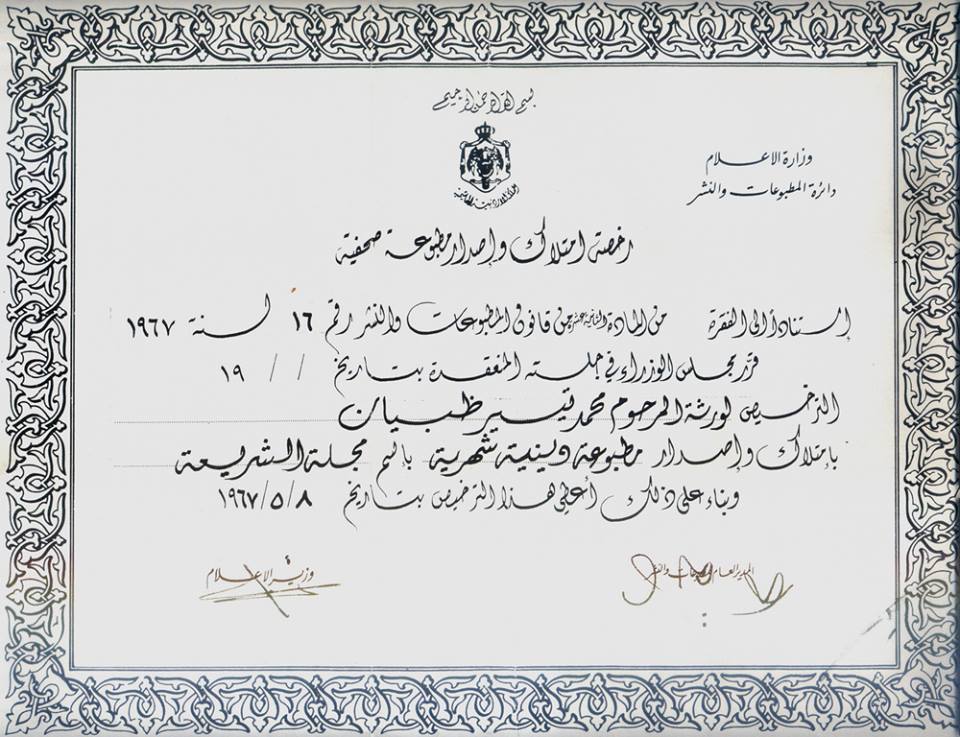 بسم الله الرحمن الرحيم
وزارة الاعلام
دائرة المطبوعات والنشر
المملكة الاردنية الهاشمية
رخصة امتلاك وإصدار مطبوعة صحفية
إستناداً الى الفقرة من المادة الثانية عشر من قانون المطبوعات والنشر رقم ١٦ لسنة ١٩٦٧
قرّر مجلس الوزراء في جلسته المنعقدة بتاريخ / / ١٩
الترخيص لورثة المرحوم محمد تيسير ظبيان
بإمتلاك وإصدار مطبوعة دينية شهرية بإسم مجلة الشريعة
وبناء على ذلك أعطي هذا الترخيص بتاريخ ١٩٦٧/٥/٨
المدير العام للمطبوعات والنشر
وزير الاعلام